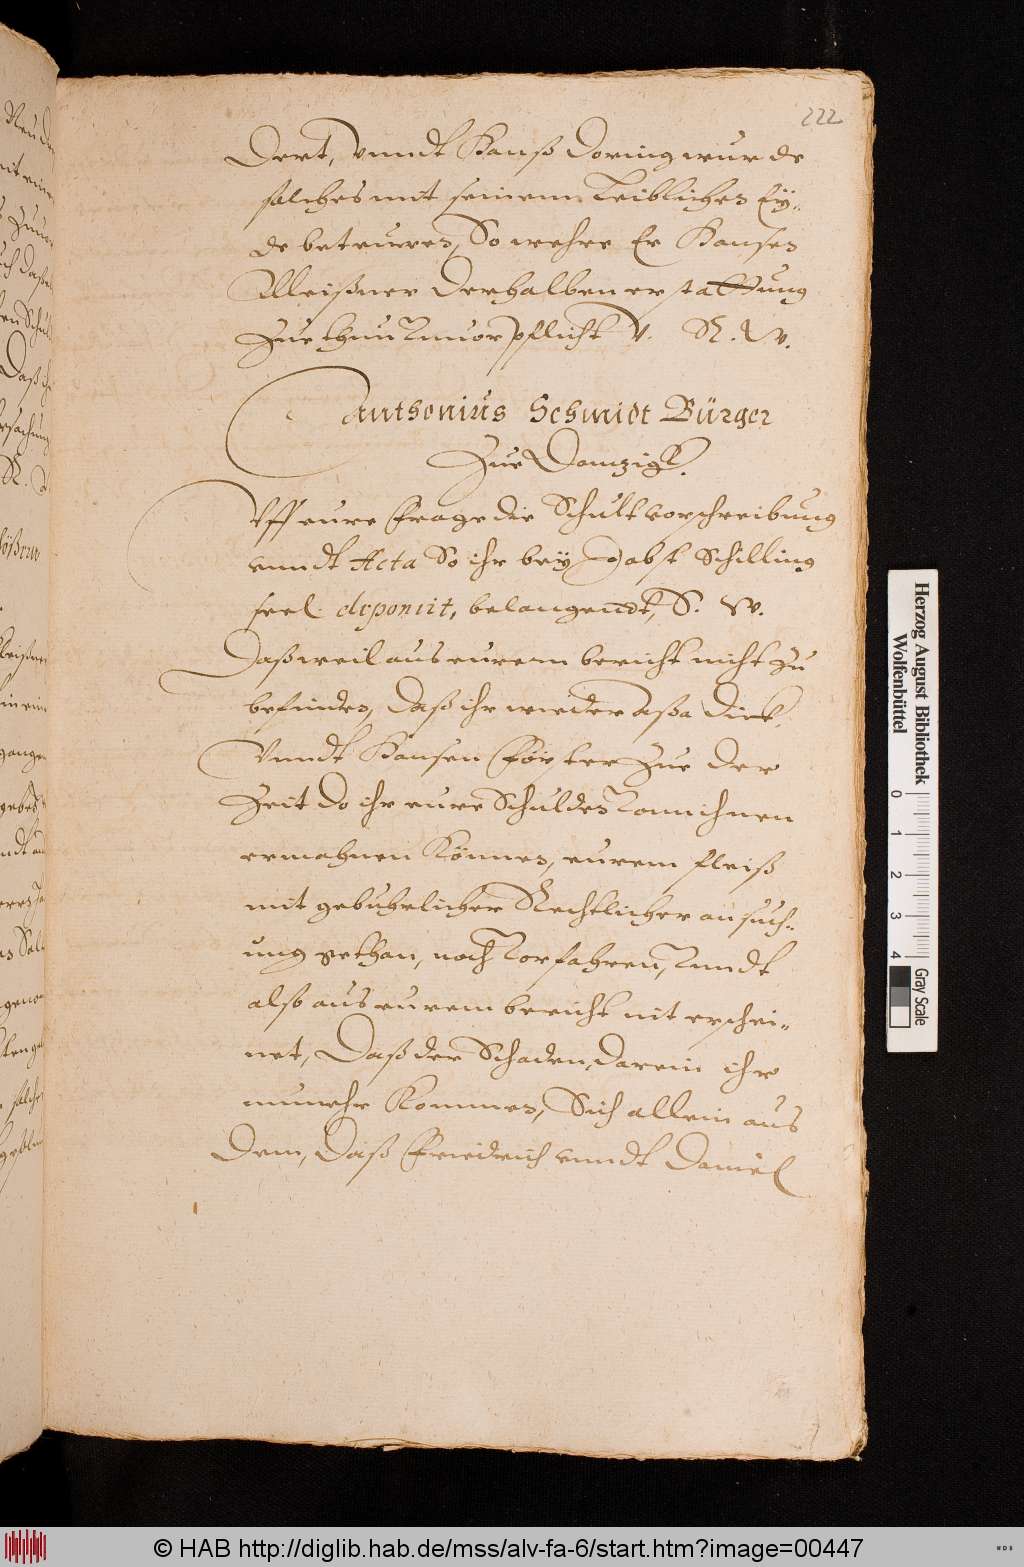 222
Dert, vnndt Hanß Doring wurde
solches mit seinem Leiblichen Eÿ-
de beteuren, So wehre Er Hansen
Meißner derhalben erstattung
Zue thun vnuorpflicht v. R. W.
Anthonius Schmidt Bürger
Zue Dantzigk.
Vff eure Frage die Schultvorschreibung
vnndt Acta So ihr beÿ Jobst Schilling
seel. deponirt, belangendt, S. W.
Daß weil aus eurem bericht nicht zu
befinden, Daß ihr wieder
Vnndt Hansen Förster Zue der
Zeit do ihr eure Schulden von ihnen
ermahnen Können, eurem fleiß
mit gebuhrlicher Rechtlicher ansuch-
ung gethan, noch vorfahren, vnndt
also aus eurem bericht nit erschei-
net, Daß der Schaden, darein ihr
nunehr Kommen, Sich allein aus
Dem, Daß Friedrich vnndt Daniel
Herzog August Bibliothek
Wolfenbüttel
0 1 2 3 4
Gray Scale
© HAB http://diglib.hab.de/mss/alv-fa-6/start.htm?image=00447